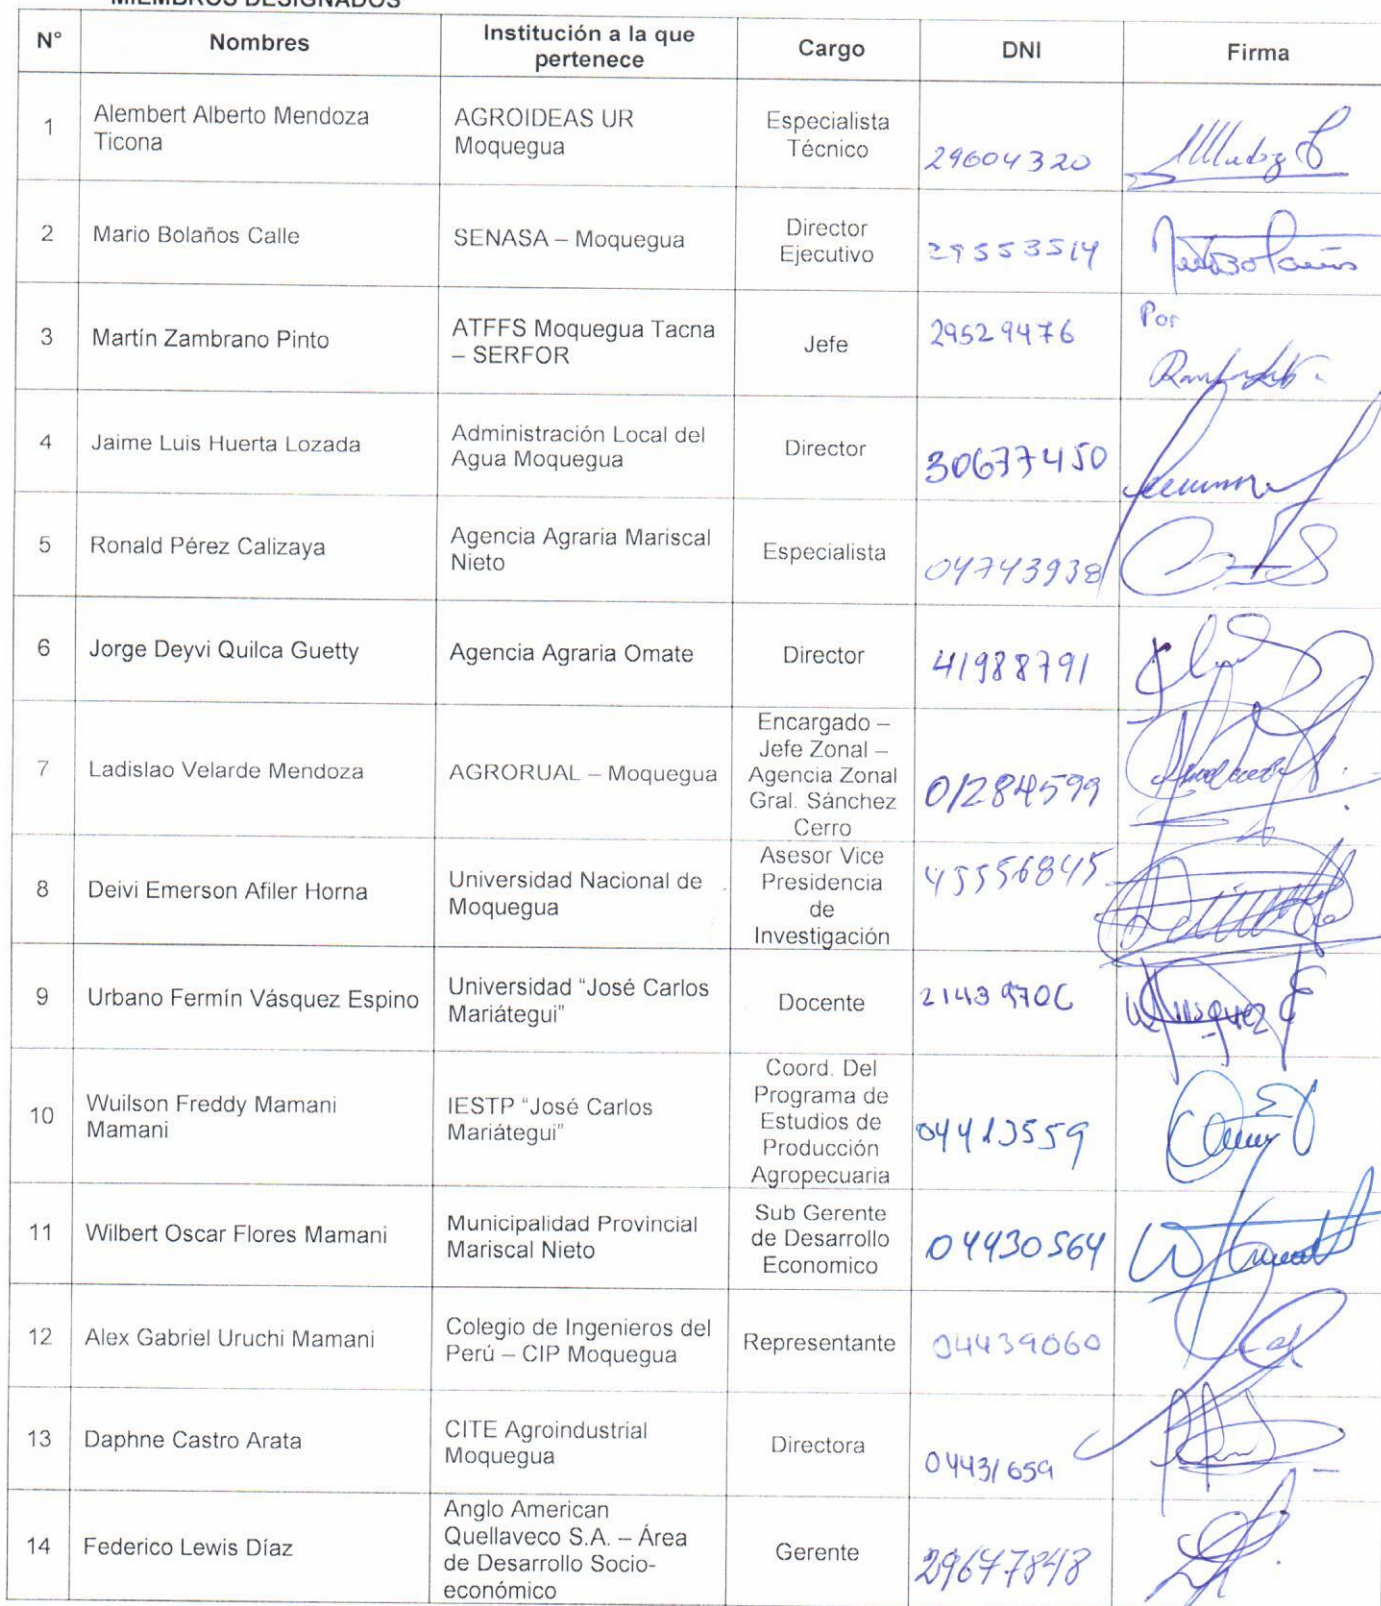 MIEMBROS DESIGNADOS
N° Nombres Institución a la que pertenece Cargo DNI Firma
1 Alembert Alberto Mendoza Ticona AGROIDEAS UR Moquegua Especialista Técnico 29604320
2 Mario Bolaños Calle SENASA – Moquegua Director Ejecutivo 29553514
3 Martín Zambrano Pinto ATFFS Moquegua Tacna – SERFOR Jefe 29529476 Por
4 Jaime Luis Huerta Lozada Administración Local del Agua Moquegua Director 30677450
5 Ronald Pérez Calizaya Agencia Agraria Mariscal Nieto Especialista 04743938
6 Jorge Deyvi Quilca Guetty Agencia Agraria Omate Director 41988791
7 Ladislao Velarde Mendoza AGRORUAL – Moquegua Encargado – Jefe Zonal – Agencia Zonal Gral. Sánchez Cerro 01284599
8 Deivi Emerson Afiler Horna Universidad Nacional de Moquegua Asesor Vice Presidencia de Investigación 45556845
9 Urbano Fermín Vásquez Espino Universidad “José Carlos Mariátegui” Docente
10 Wuilson Freddy Mamani Mamani IESTP “José Carlos Mariátegui” Coord. Del Programa de Estudios de Producción Agropecuaria 04413559
11 Wilbert Oscar Flores Mamani Municipalidad Provincial Mariscal Nieto Sub Gerente de Desarrollo Economico 04430564
12 Alex Gabriel Uruchi Mamani Colegio de Ingenieros del Perú – CIP Moquegua Representante 04439060
13 Daphne Castro Arata CITE Agroindustrial Moquegua Directora 04431659
14 Federico Lewis Díaz Anglo American Quellaveco S.A. – Área de Desarrollo Socio-económico Gerente 29647848